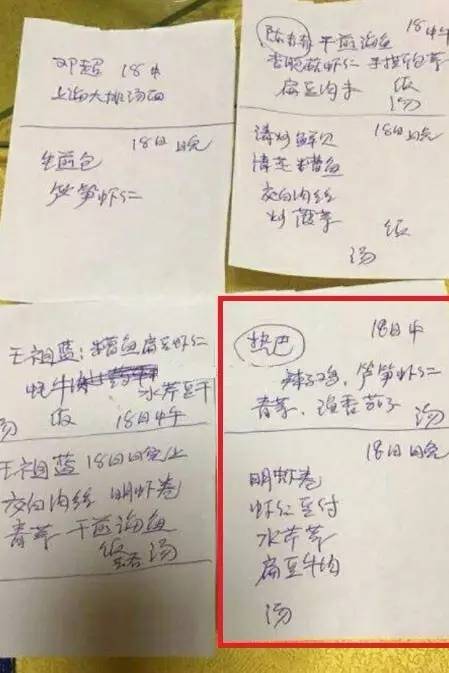 邓超 18中
上海大排汤面
18日晚
生煎包
笋笋虾仁
陈赫 干煎海鱼 18中午
手撕包菜
扁豆肉片 饭
汤
清炒鲜贝 18日晚
清蒸糟鱼
茭白肉丝
炒菠菜 饭
汤
王祖蓝：糟鱼扁豆虾仁
水芹豆干
汤 饭 18日中午
王祖蓝 18日晚上
茭白肉丝 明虾卷
青菜 干煎海鱼
饭 汤
热巴 18日中
辣子鸡，笋笋虾仁
青菜，鱼香茄子 汤
18日晚
明虾卷
虾仁豆付
水芹菜
扁豆牛肉
汤